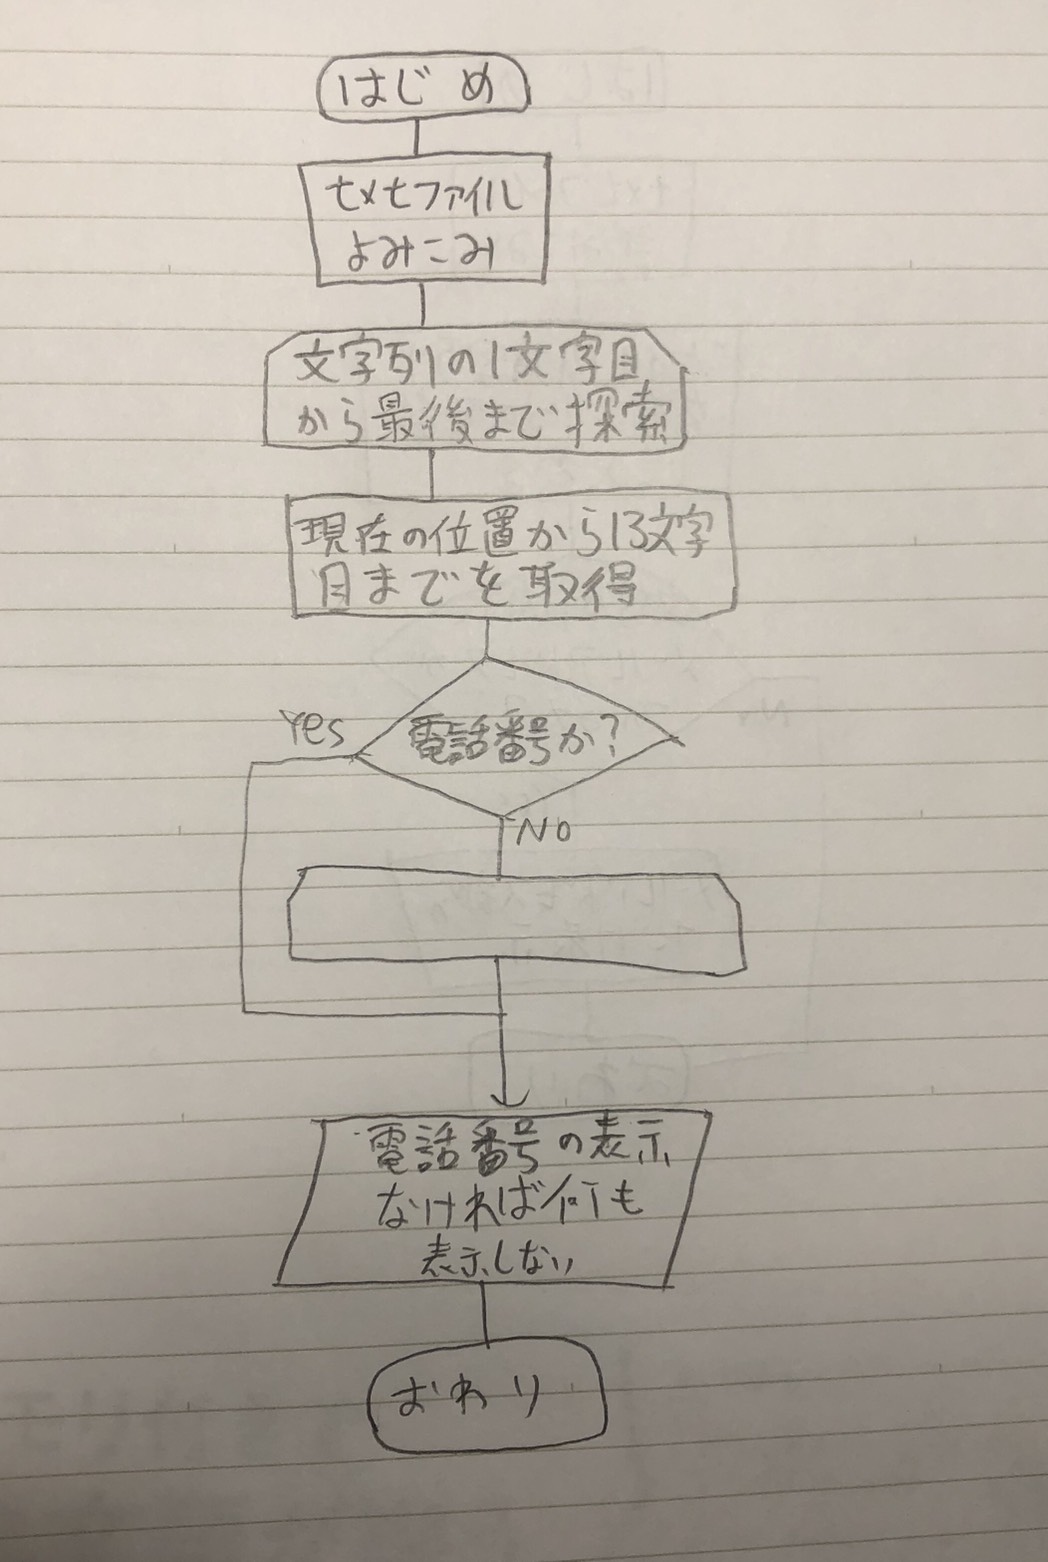 はじめ
txtファイル
よみこみ
文字列の1文字目
から最後まで探索
現在の位置から13文字
目までを取得
Yes
電話番号か?
No
電話番号の表示
なければ何も
表示しない
おわり